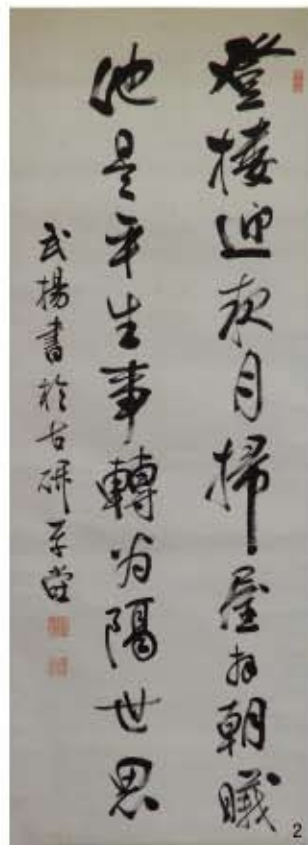 登樓迎夜月掃屋拜朝曦
此是平生事轉為隔世思
武揚書於古研草堂
2